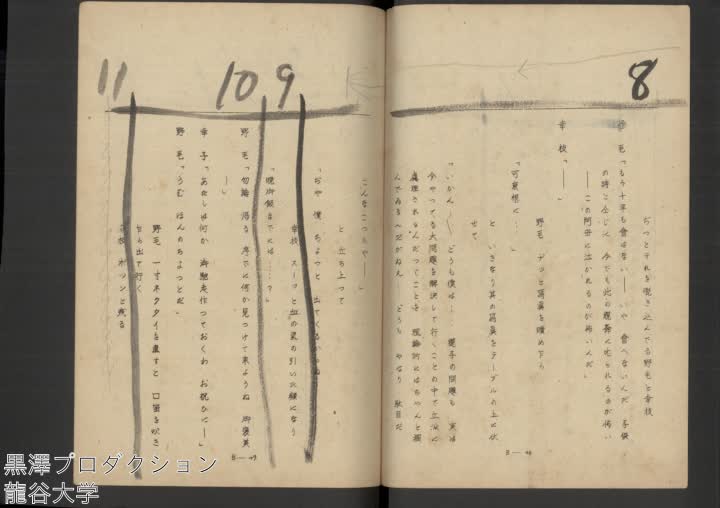 8
ぢつとそれを覗き込んでる野毛と幸枝
野毛「もう十年も會はない――いや 會へないんだ 子供
の時と同じに 今でも此の親爺に叱られるのが怖い
――この阿母に泣かれるのが怖いんだ」
幸枝「――」
野毛 ヂッと寫眞を瞶め乍ら
「可哀想に…」
と いきなり其の寫眞をテーブルの上に伏
せて
「いかん ――どうも僕は… 選手の問題も 実は
今やつてる大問題を解決して行くことの中で 立派に
處理されるんだつてことを 理論的にはちやんと掴
んでゐるへだがねえ――どうも やはり 駄目だ
8―
9
10
11
こんなこつちや――」
と 立ち上つて
「ぢや 僕 ちよつと 出てくるからね
幸枝 スーッと血の氣の引いた顔になり
「晩御飯までには……?」
野毛「勿論 帰る 序でに何か見つけて来ようね 御褒美
――」
幸子「あたしは何か 御馳走作つておくわ お祝ひに――」
野毛「うむ ほんのちよつとだ」
野毛 一寸ネクタイを直すと 口笛を吹き
乍ら出て行く
幸枝 ポツンと残る
8―
黒澤プロダクション
龍谷大学